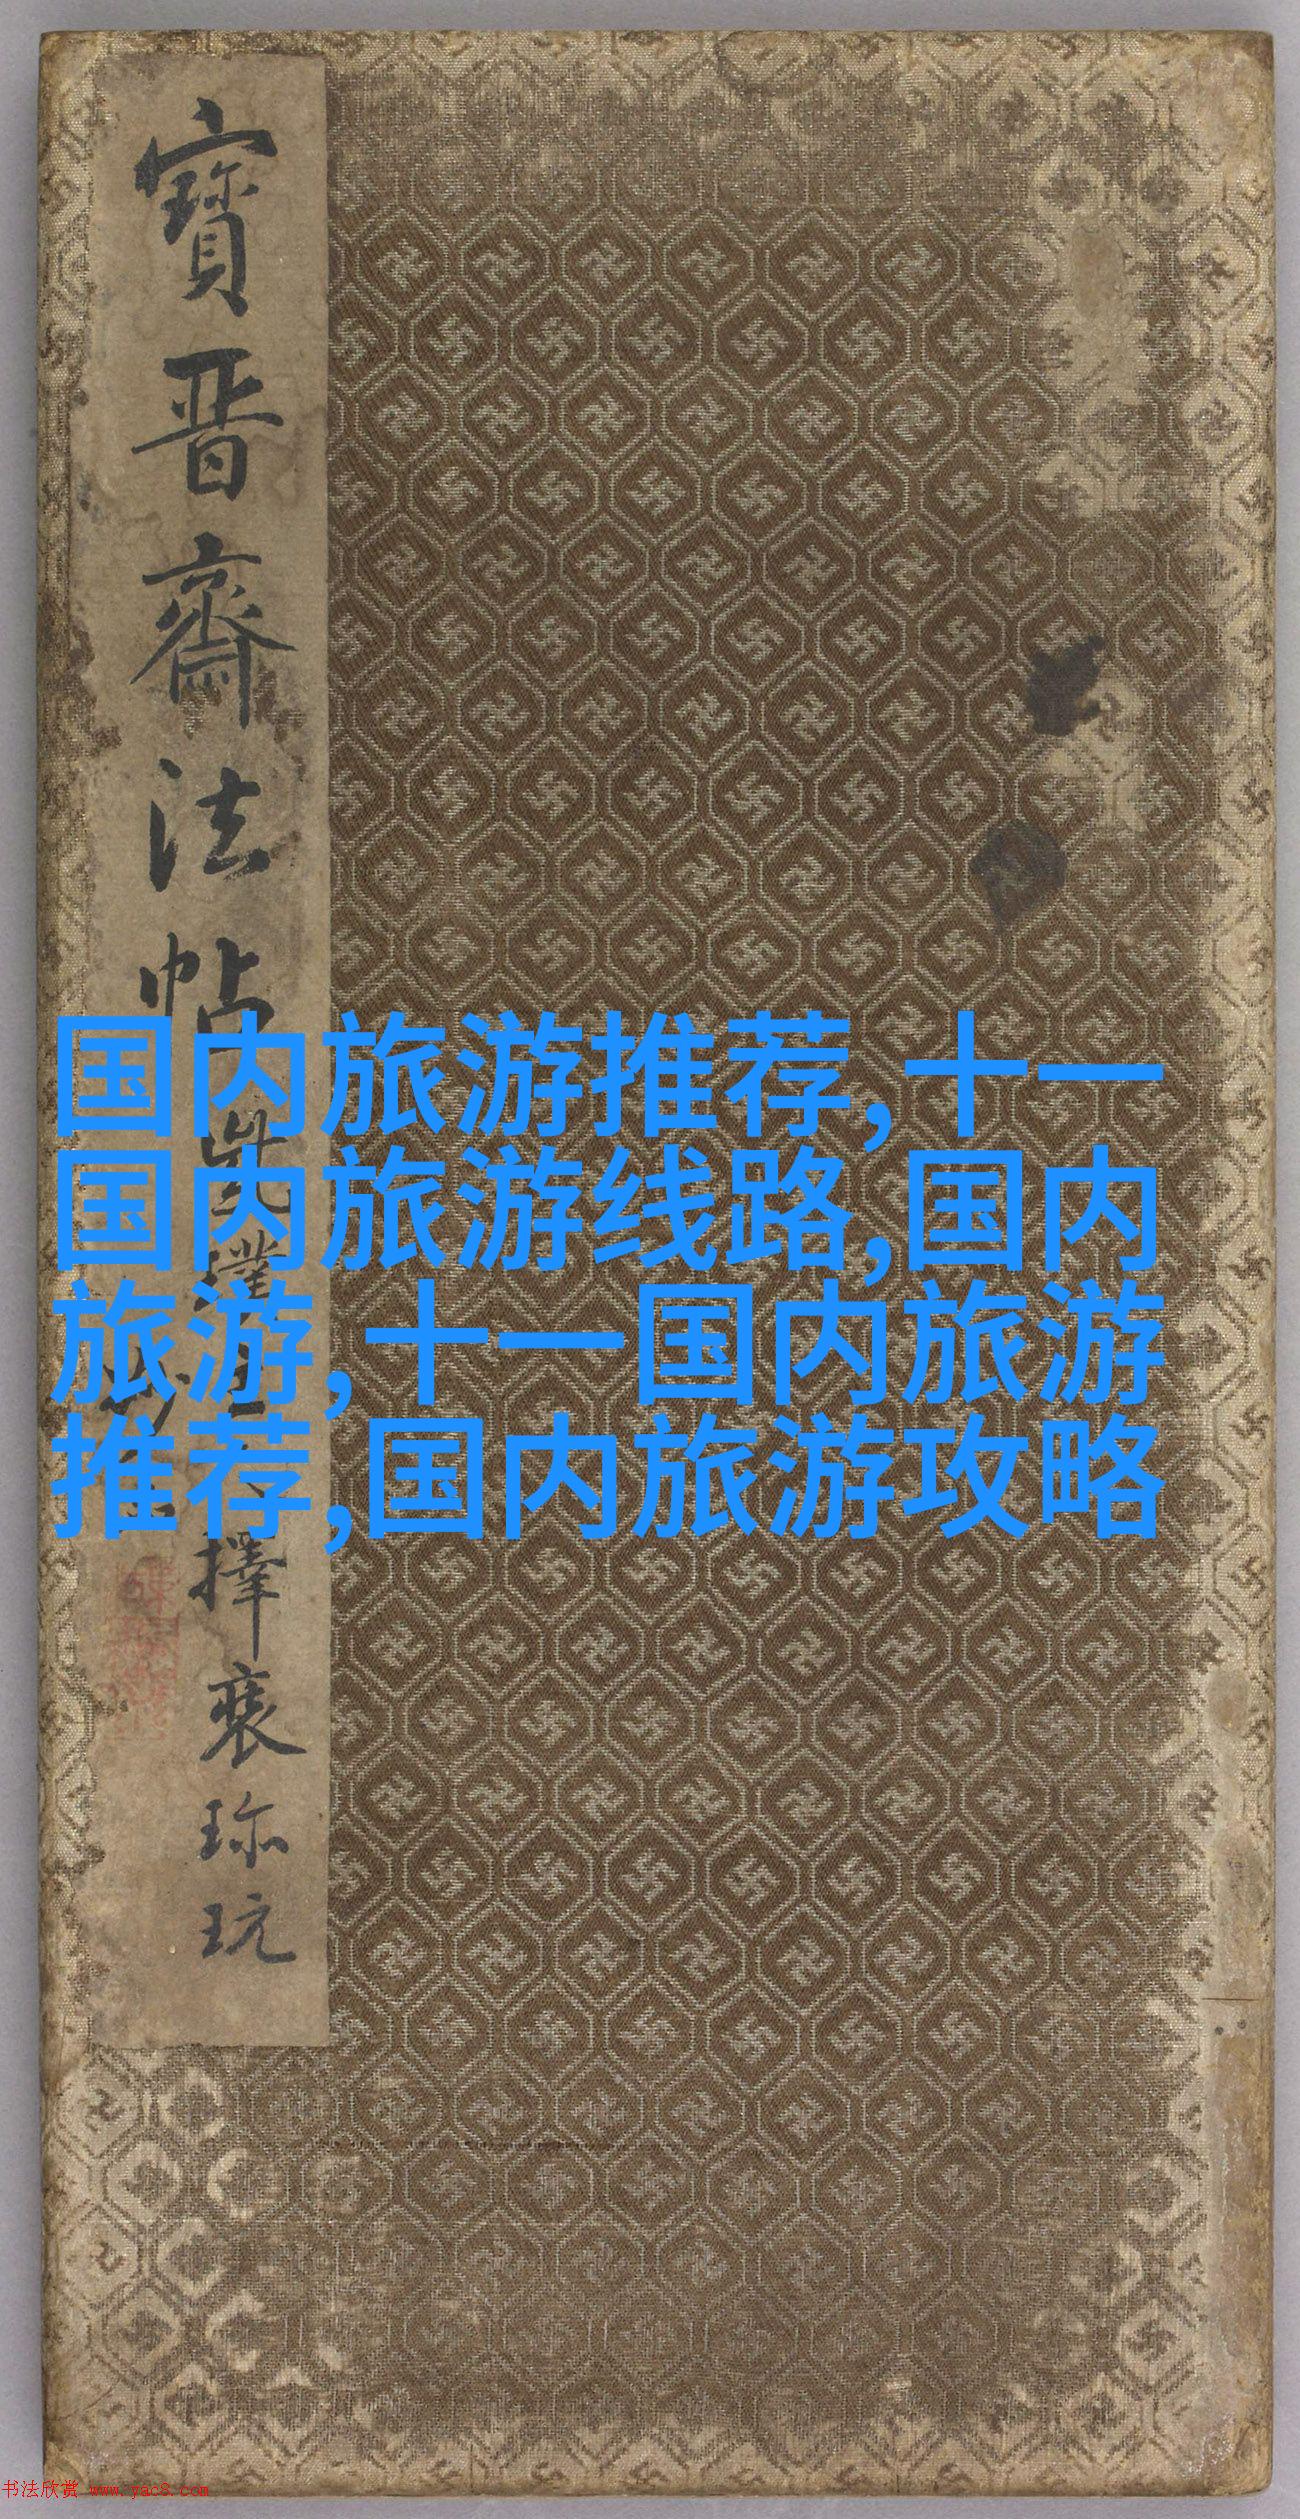 寶晋齋法帖
擇裵珎玩
国内旅游推荐,十一
国内旅游线路,国内
旅游,十一国内旅游
推荐,国内旅游攻略
书法欣赏 www.yac8.com